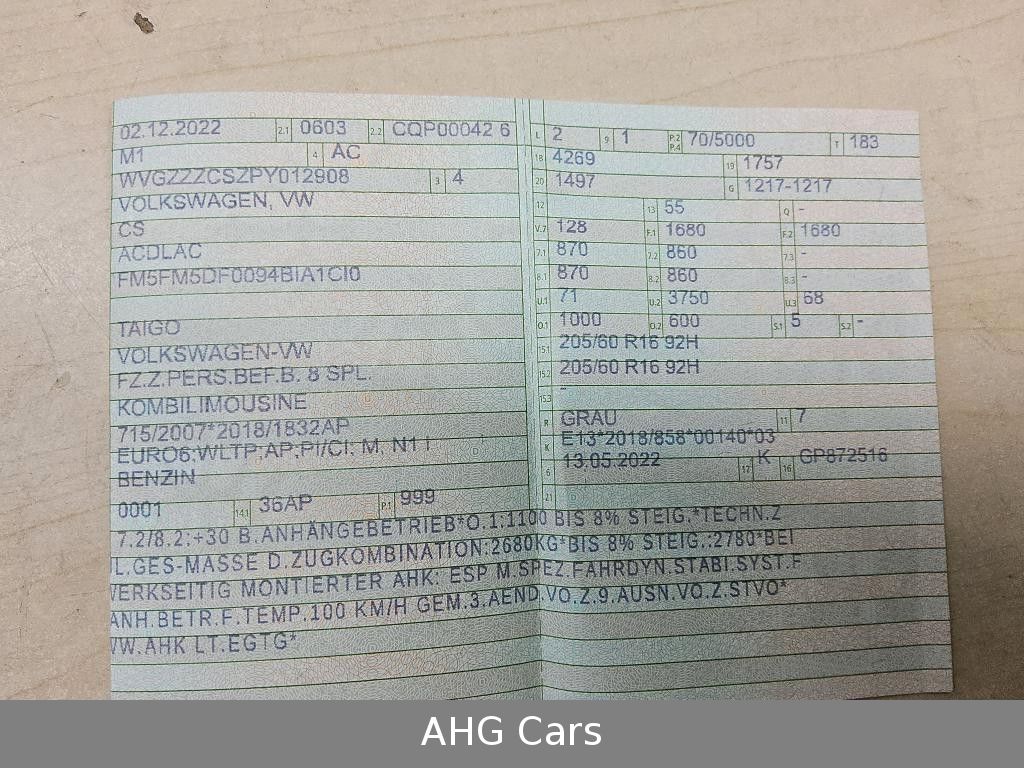 02.12.2022 2.1 0603 2.2 CQP00042 6
M1 4 AC
WVGZZZCSZPY012908 3 4
VOLKSWAGEN, VW
CS
ACDLAC
FM5FM5DF0094BIA1CI0
TAIGO
VOLKSWAGEN-VW
FZ.Z.PERS.BEF.B. 8 SPL.
KOMBILIMOUSINE
715/2007*2018/1832AP
EURO6;WLTP;AP;PI/CI; M, N1 I
BENZIN
0001 14.1 36AP P.1 999
L 2 9 1 P.2 P.4 70/5000 T 183
18 4269 19 1757
20 1497 G 1217-1217
12 13 55 Q -
V.7 128 F.1 1680 F.2 1680
7.1 870 7.2 860 7.3 -
8.1 870 8.2 860 8.3 -
U.1 71 U.2 3750 U.3 68
O.1 1000 O.2 600 S.1 5 S.2 -
15.1 205/60 R16 92H
15.2 205/60 R16 92H
15.3 -
R GRAU 11 7
K E13*2018/858*00140*03
6 13.05.2022 17 K 16 GP872516
21
7.2/8.2:+30 B.ANHÄNGEBETRIEB*O.1:1100 BIS 8% STEIG.*TECHN.Z
L.GES-MASSE D.ZUGKOMBINATION:2680KG*BIS 8% STEIG.:2780*BEI
WERKSEITIG MONTIERTER AHK: ESP M.SPEZ.FAHRDYN.STABI.SYST.F
ANH.BETR.F.TEMP.100 KM/H GEM.3.AEND.VO.Z.9.AUSN.VO.Z.STVO*
WW.AHK LT.EGTG*
AHG Cars